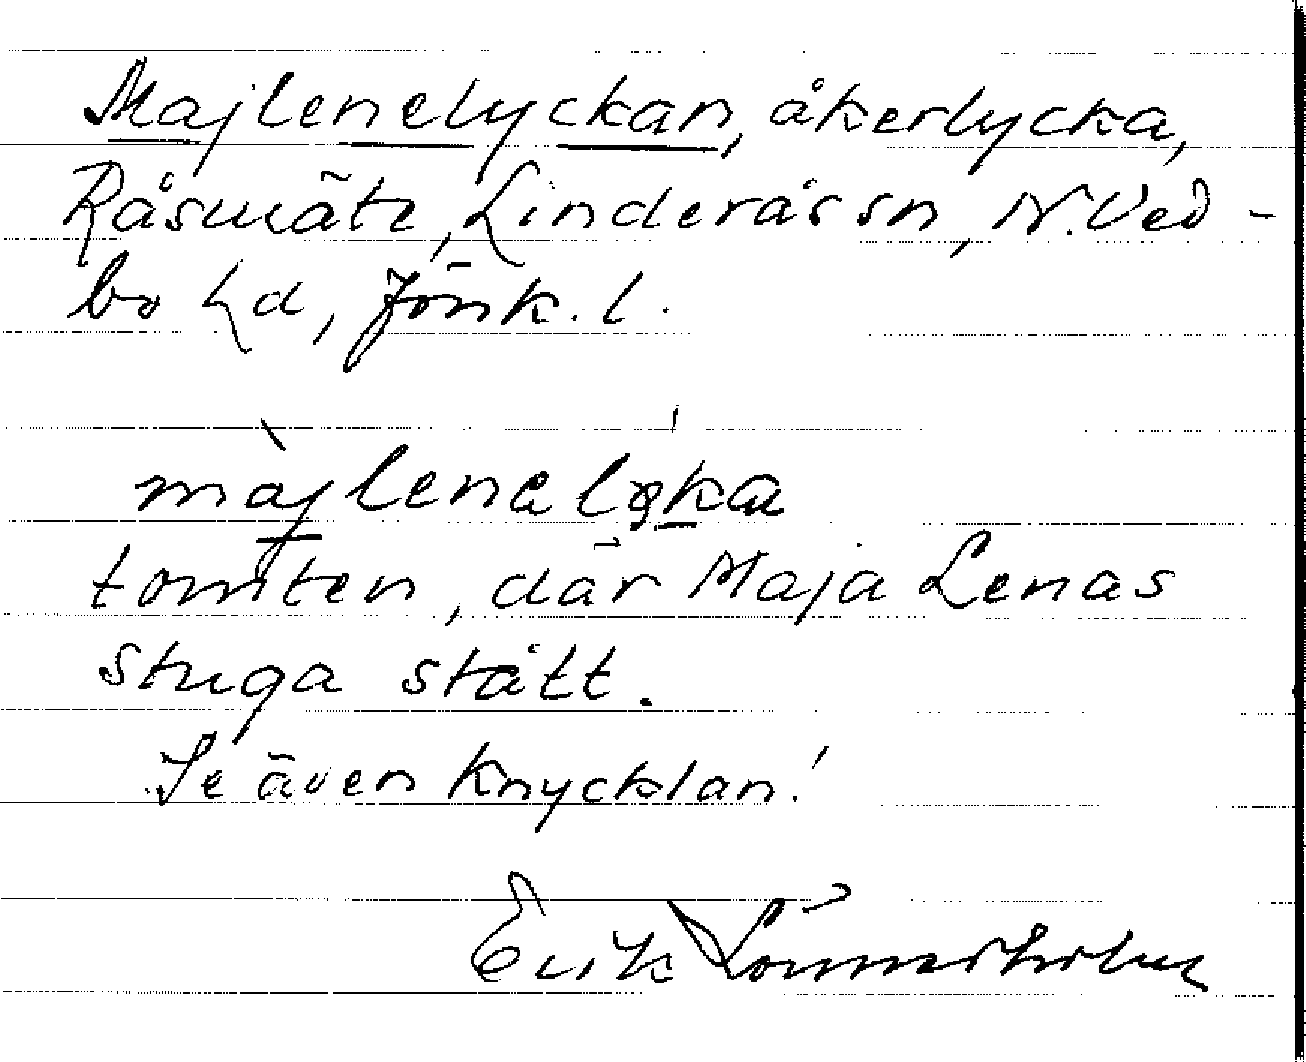 Majlenelyckan, åkerlycka,
Råsmäte, Linderås sn, N. Ved-
bo hd, Jönk. l.
tomten, där Maja Lenas
stuga stått.
Se även Knycklan!
Erik Lönnerholm